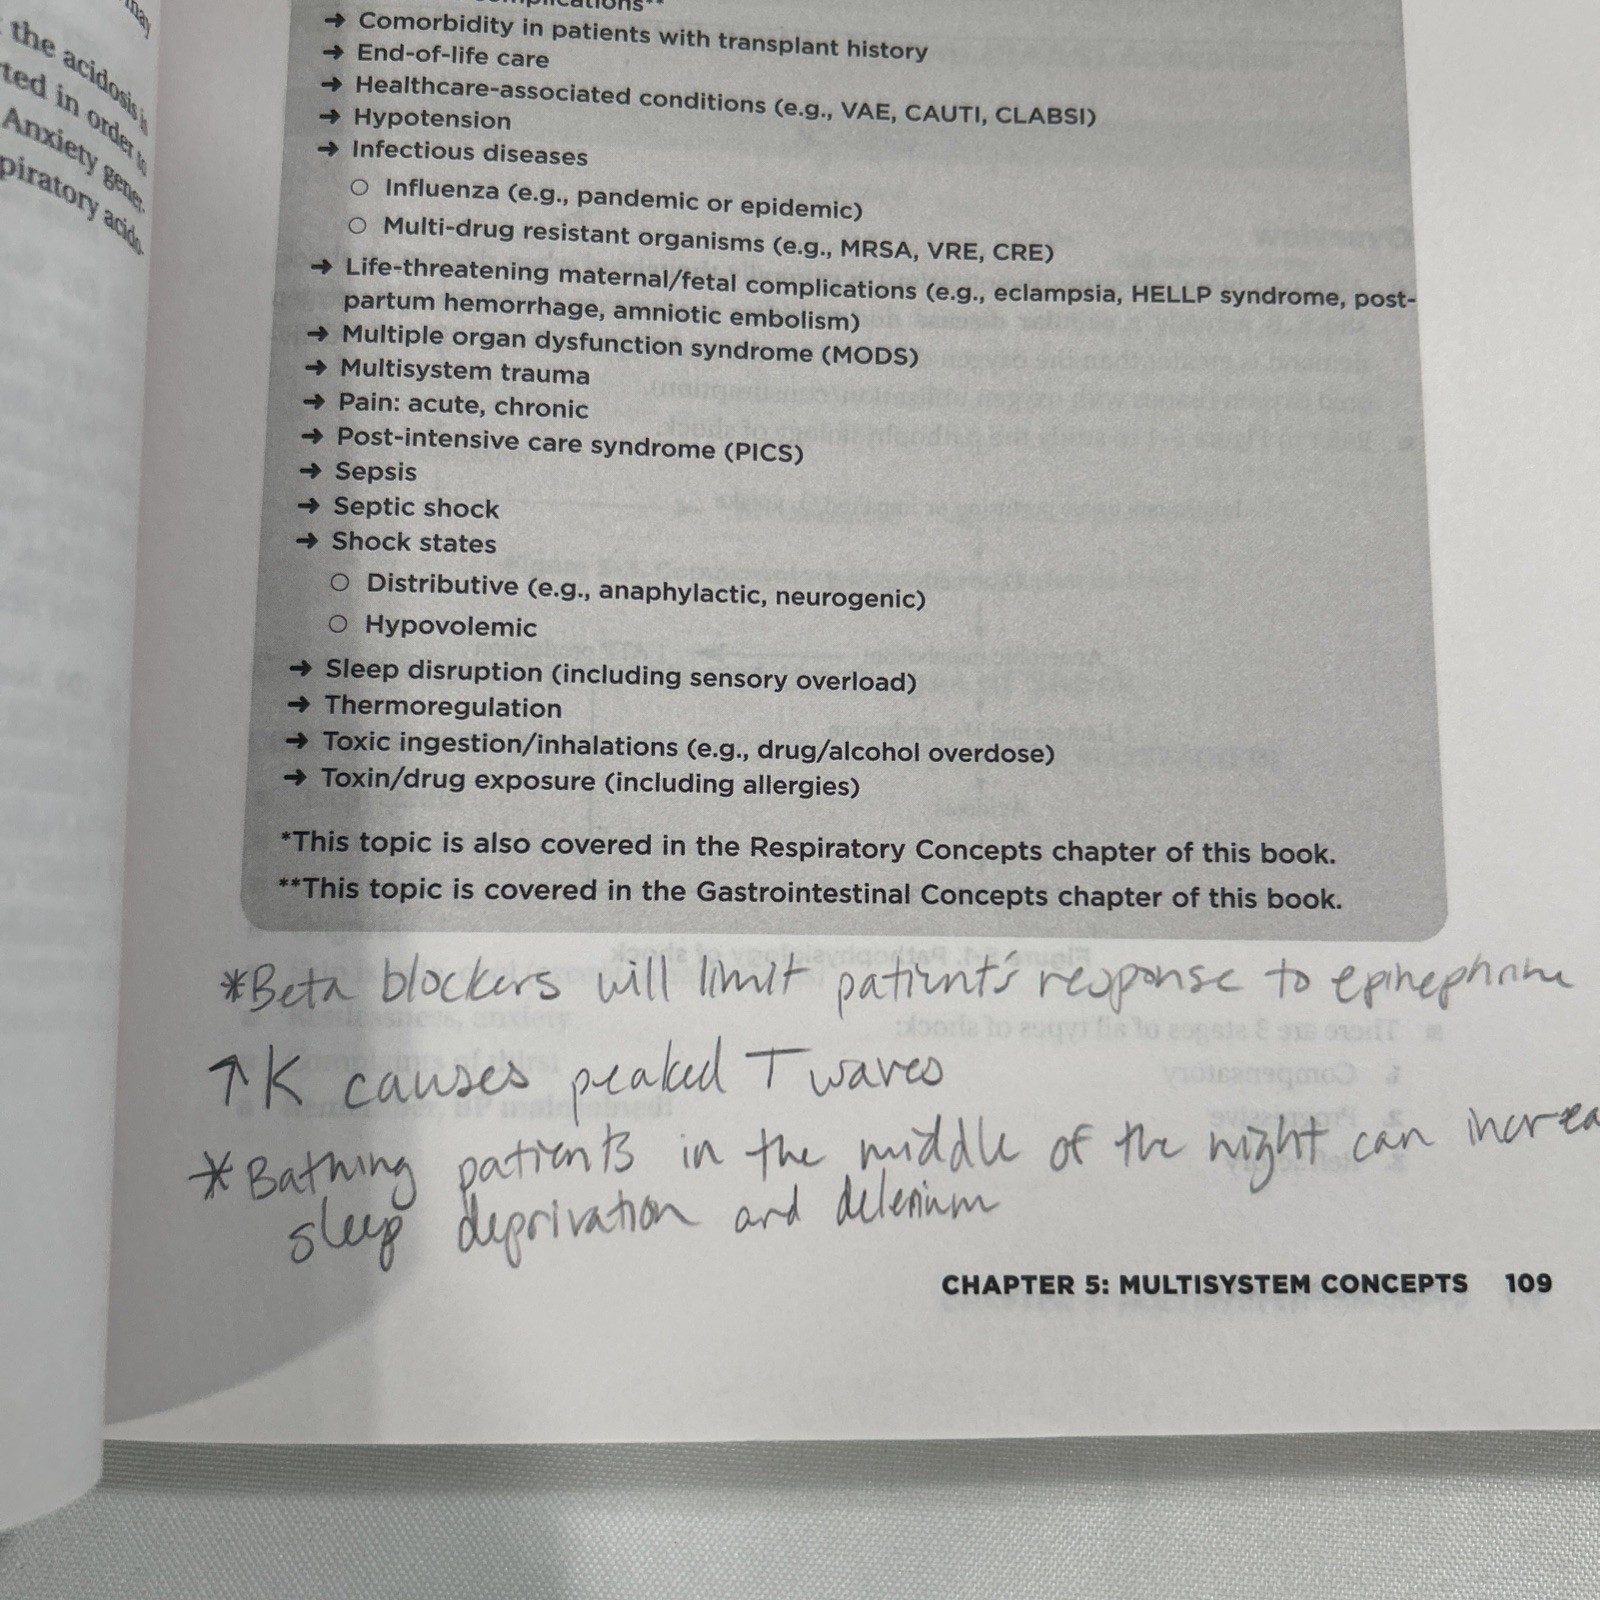 may
the acidosis is
ted in order to
Anxiety gener-
piratory acido-
→ Comorbidity in patients with transplant history
→ End-of-life care
→ Healthcare-associated conditions (e.g., VAE, CAUTI, CLABSI)
→ Hypotension
→ Infectious diseases
○ Influenza (e.g., pandemic or epidemic)
○ Multi-drug resistant organisms (e.g., MRSA, VRE, CRE)
→ Life-threatening maternal/fetal complications (e.g., eclampsia, HELLP syndrome, post-
partum hemorrhage, amniotic embolism)
→ Multiple organ dysfunction syndrome (MODS)
→ Multisystem trauma
→ Pain: acute, chronic
→ Post-intensive care syndrome (PICS)
→ Sepsis
→ Septic shock
→ Shock states
○ Distributive (e.g., anaphylactic, neurogenic)
○ Hypovolemic
→ Sleep disruption (including sensory overload)
→ Thermoregulation
→ Toxic ingestion/inhalations (e.g., drug/alcohol overdose)
→ Toxin/drug exposure (including allergies)
*This topic is also covered in the Respiratory Concepts chapter of this book.
**This topic is covered in the Gastrointestinal Concepts chapter of this book.
*Beta blockers will limit patient's response to epinephrine
↑K causes peaked T waves
*Bathing patients in the middle of the night can increa
sleep deprivation and delerium
CHAPTER 5: MULTISYSTEM CONCEPTS 109